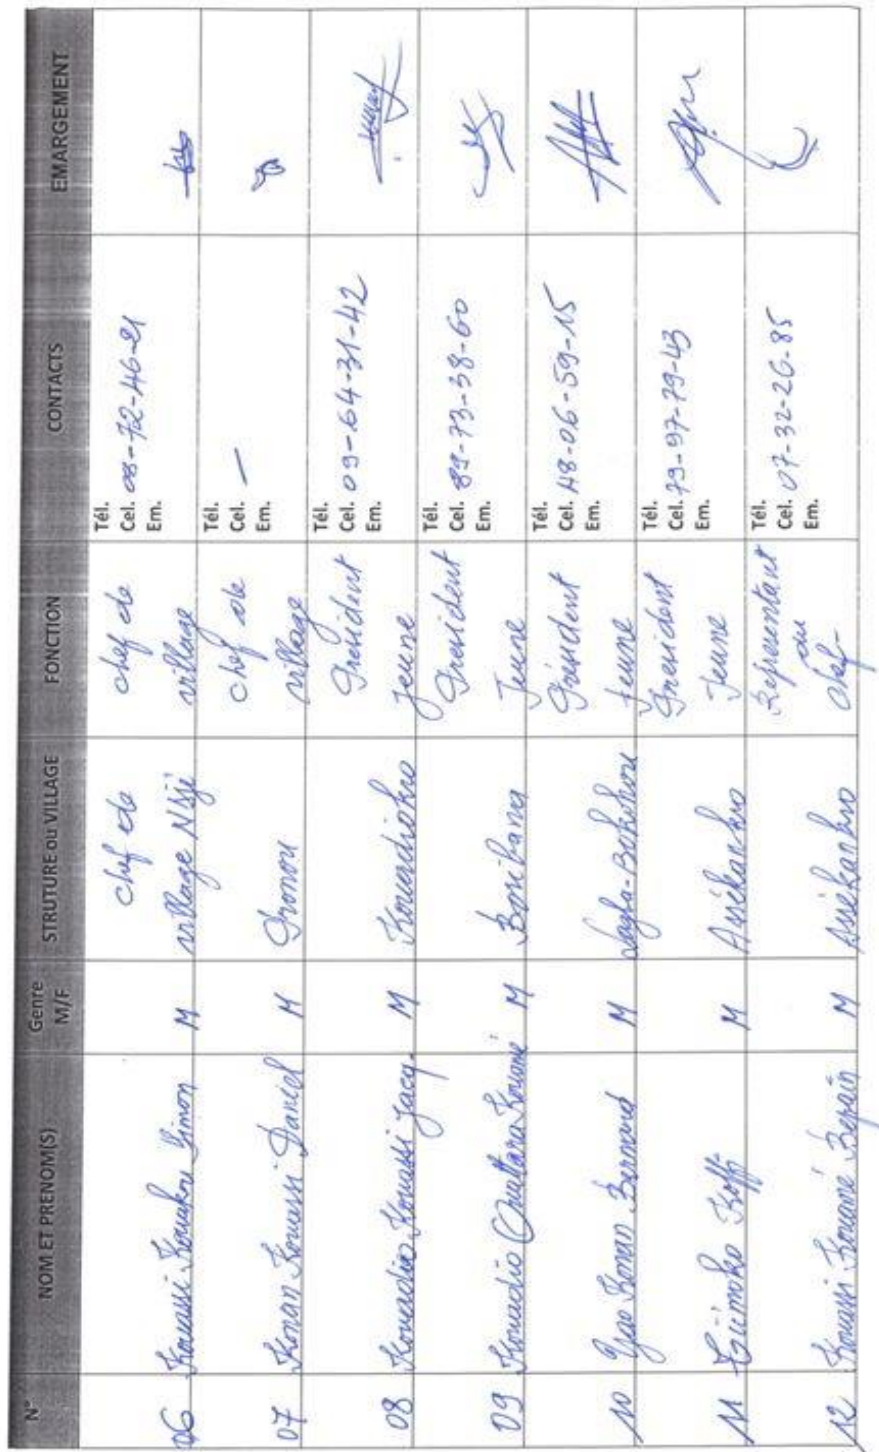 N° NOM ET PRENOM(S) Genre M/F STRUTURE ou VILLAGE FONCTION CONTACTS EMARGEMENT
06 Kouassi Kouakou Simon M chef de village chef de village Tél. Cel. 08-72-46-21 Em.
07 Konan Kouassi Daniel M chef de village Tél. Cel. — Em.
08 Kouadio Kouassi Jacq. M Kouadiokro President Jeune Tél. Cel. 09-64-31-42 Em.
09 Kouadio Ouattara Kouamé M Boribana President Jeune Tél. Cel. 89-73-38-60 Em.
10 Yao Konan Bernard M President Jeune Tél. Cel. 48-06-59-15 Em.
11 Koffi M Assékankro President Jeune Tél. Cel. 79-97-79-43 Em.
12 Kouassi Kouamé M Assékankro Representant du chef Tél. Cel. 07-32-26-85 Em.